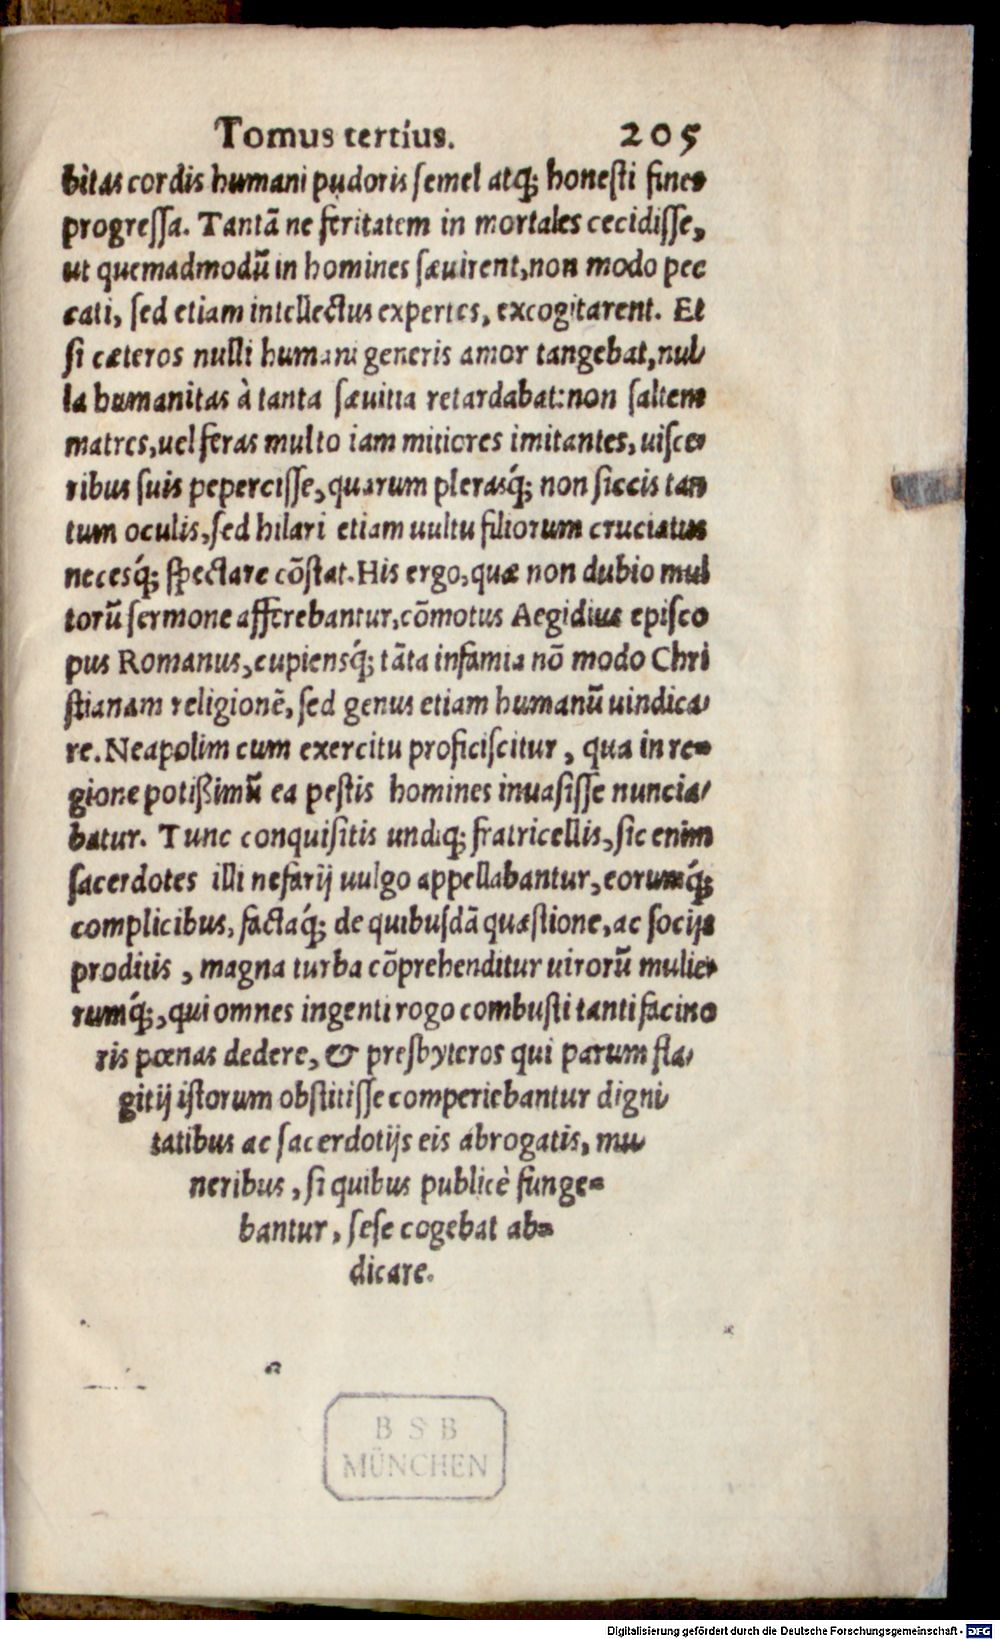 Tomus tertius. 205
bitas cordis humani pudoris semel atq; honesti fines
progressa. Tantā ne feritatem in mortales cecidisse,
ut quemadmodū in homines sæuirent, non modo pec
cati, sed etiam intellectus expertes, excogitarent. Et
si cæteros nulli humani generis amor tangebat, nul⸗
la humanitas à tanta sæuitia retardabat: non saltem
matres, uel feras multo iam mitiores imitantes, uisce⸗
ribus suis pepercisse, quarum plerasq́; non siccis tan
tum oculis, sed hilari etiam uultu filiorum cruciatus
necesq́; spectare cōstat. His ergo, quæ non dubio mul
torū sermone afferebantur, cōmotus Aegidius episco
pus Romanus, cupiensq́; tāta infamia nō modo Chri
stianam religionē, sed genus etiam humanū uindica⸗
re. Neapolim cum exercitu proficiscitur, qua in re⸗
gione potißimū ea pestis homines inuasisse nuncia⸗
batur. Tunc conquisitis undiq; fratricellis, sic enim
sacerdotes illi nefarij uulgo appellabantur, eorumq́;
complicibus, factaq́; de quibusdā quæstione, ac socijs
proditis, magna turba cōprehenditur uirorū mulie⸗
rumq́;, qui omnes ingenti rogo combusti tanti facino
ris pœnas dedere, & presbyteros qui parum fla⸗
gitij istorum obstitisse comperiebantur digni⸗
tatibus ac sacerdotijs eis abrogatis, mu⸗
neribus, si quibus publicè funge⸗
bantur, sese cogebat ab⸗
dicare.
BSB
MÜNCHEN
Digitalisierung gefördert durch die Deutsche Forschungsgemeinschaft - DFG